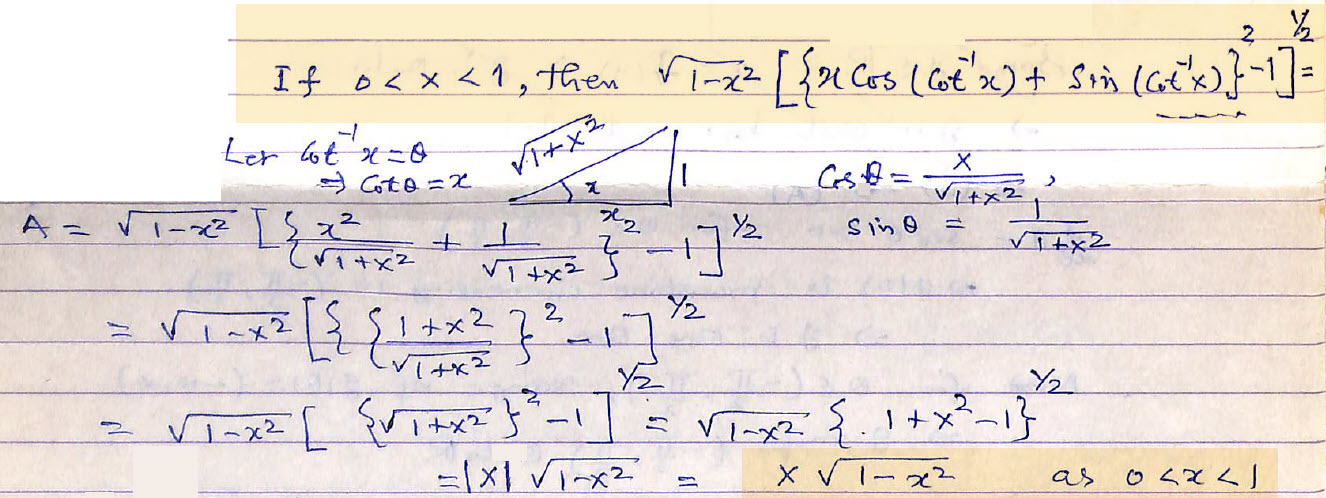 If 0 < x < 1, then √1-x² [{x Cos (Cot⁻¹x) + Sin (Cot⁻¹x)}² -1]^½ =
Let Cot⁻¹x = θ
⇒ Cotθ = x
√1+x² 1 x x
Cosθ = x/√1+x² ,
sinθ = 1/√1+x²
A = √1-x² [{x²/√1+x² + 1/√1+x²}² -1]^½
= √1-x² [{ {1+x²/√1+x²}² -1]^½
= √1-x² [ {√1+x²}² -1]^½ = √1-x² {. 1+x² -1}^½
= |x| √1-x² = x √1-x² as 0<x<1